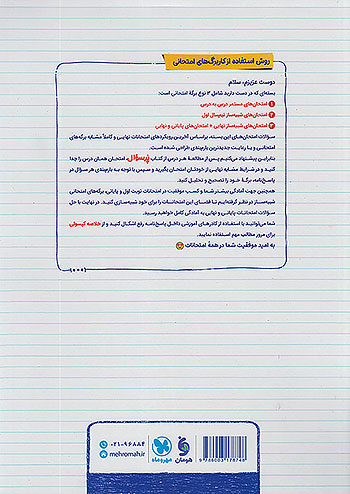 روش استفاده از کاربرگ‌های امتحانی
دوست عزیزم، سلام
بسته‌ای که در دست دارید شامل ۳ نوع برگهٔ امتحانی است:
۱ امتحان‌های مستمر درس به درس
۲ امتحان‌های شبیه‌ساز نیم‌سال اول
۳ امتحان‌های شبیه‌ساز نهایی + امتحان‌های پایانی و نهایی
سؤالات امتحان‌های این بسته، براساس آخرین رویکردهای امتحانات نهایی و کاملاً مشابه برگه‌های
امتحانی و با رعایت جدیدترین بارم‌بندی طراحی شده است.
بنابراین پیشنهاد می‌کنیم پس از مطالعهٔ هر درس از کتاب پرسؤال، امتحان همان درس را جدا
کنید و در شرایط مشابه نهایی از خودتان امتحان بگیرید و سپس با توجه به بارم‌بندی هر سؤال در
پاسخ‌نامه، برگهٔ خود را تصحیح و تحلیل کنید.
همچنین جهت آمادگی بیشتر شما و کسب موفقیت در امتحانات نوبت اول و پایانی، برگه‌های امتحانی
شبیه‌ساز در نظر گرفته‌ایم تا فضای این امتحانات را برای خود شبیه‌سازی کنید. در نهایت با حل
سؤالات امتحانات پایانی و نهایی به آمادگی کامل خواهید رسید.
شما می‌توانید با استفاده از کادرهای آموزشی داخل پاسخ‌نامه رفع اشکال کنید و از خلاصه کپسولی
برای مرور مطالب مهم استفاده نمایید.
به امید موفقیت شما در همهٔ امتحانات
۰۲۱-۹۶۸۸۴
mehromah.ir
مهروماه
هومان
9786003178748